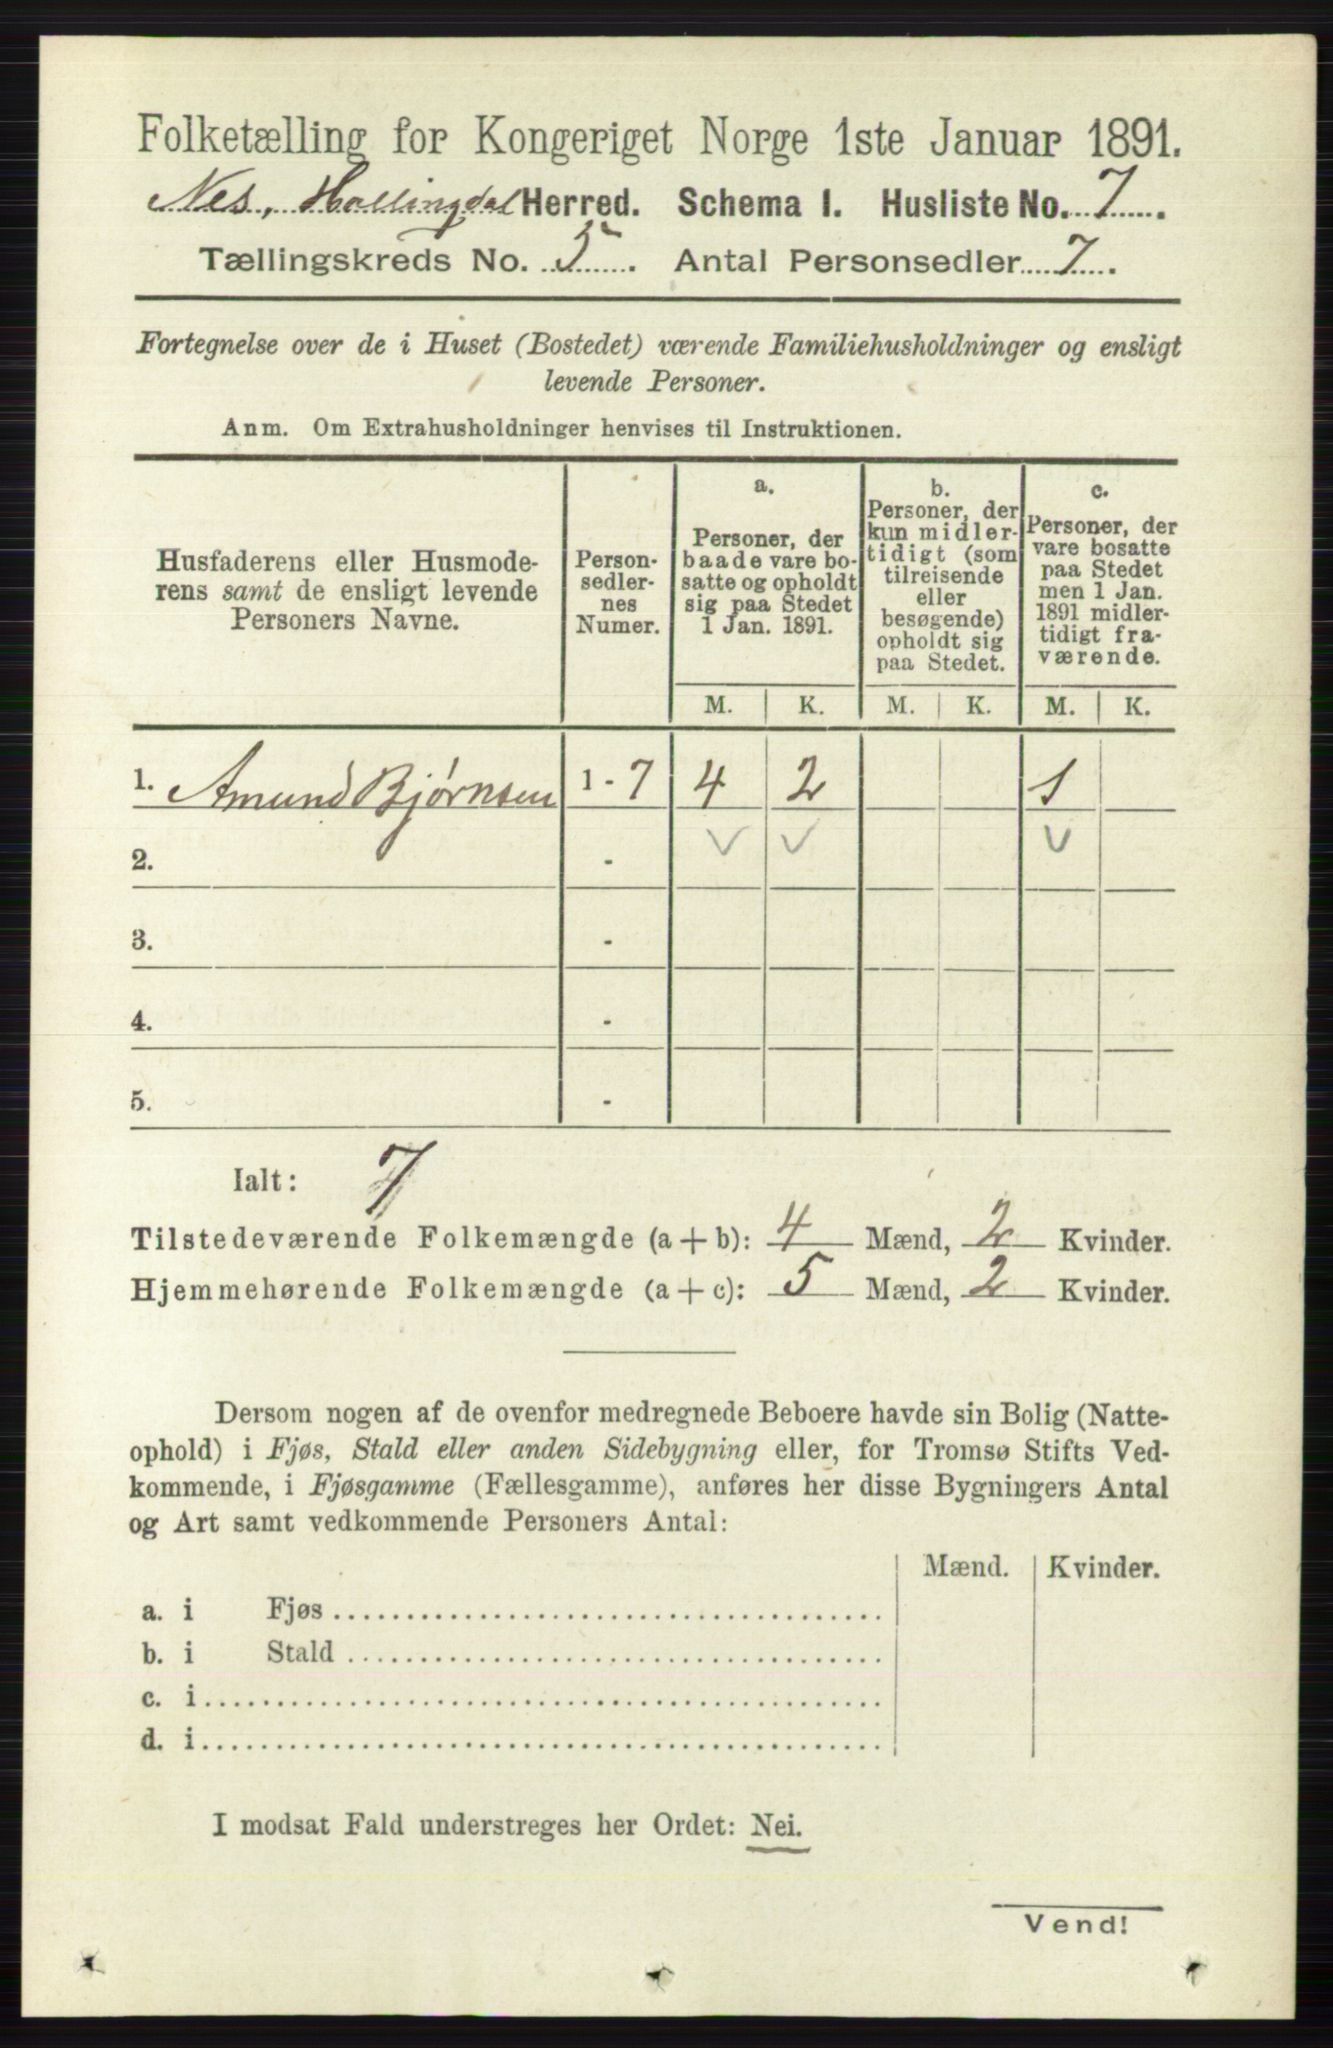 Folketælling for Kongeriget Norge 1ste Januar 1891.
Nes, Hallingdal Herred. Schema I. Husliste No. 7.
Tællingskreds No. 5. Antal Personsedler 7.
Fortegnelse over de i Huset (Bostedet) værende Familiehusholdninger og ensligt
levende Personer.
Anm. Om Extrahusholdninger henvises til Instruktionen.
Husfaderens eller Husmode-
rens samt de ensligt levende
Personers Navne.
Person-
sedler-
nes
Numer.
a.
Personer, der
baade vare bo-
satte og opholdt
sig paa Stedet
1 Jan. 1891.
b.
Personer, der
kun midler-
tidigt (som
tilreisende
eller
besøgende)
opholdt sig
paa Stedet.
c.
Personer, der
vare bosatte
paa Stedet
men 1 Jan.
1891 midler-
tidigt fra-
værende.
M. K. M. K. M. K.
1. Amund Bjørnsen 1 - 7 4 2 1
2. -
3. -
4. -
5. -
Ialt: 7
Tilstedeværende Folkemængde (a + b): 4 Mænd, 2 Kvinder.
Hjemmehørende Folkemængde (a + c): 5 Mænd, 2 Kvinder.
Dersom nogen af de ovenfor medregnede Beboere havde sin Bolig (Natte-
ophold) i Fjøs, Stald eller anden Sidebygning eller, for Tromsø Stifts Ved-
kommende, i Fjøsgamme (Fællesgamme), anføres her disse Bygningers Antal
og Art samt vedkommende Personers Antal:
Mænd. Kvinder.
a. i Fjøs
b. i Stald
c. i
d. i
I modsat Fald understreges her Ordet: Nei.
Vend!